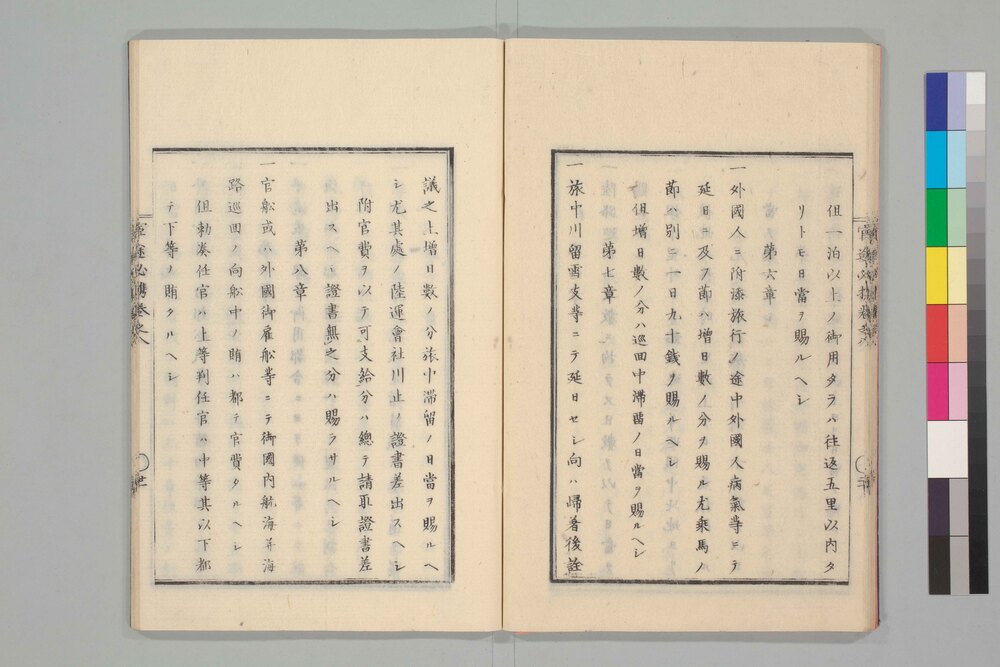 但一泊以上ノ御用タラハ往返五里以内タ
リトモ日當ヲ賜ルヘシ
第六章
一外國人ニ附添旅行ノ途中外國人病氣等ニテ
延日ニ及フ節ハ增日數ノ分ヲ賜ル尤乘馬ノ
節ハ別ニ一日九十錢ヲ賜ルヘシ
但增日數ノ分ハ巡回中滯畱ノ日當ヲ賜ルヘシ
第七章
一旅中川留雪支等ニテ延日セシ向ハ歸着後詮
議之上增日數ノ分旅中滯留ノ日當ヲ賜ルヘ
シ尤其處ノ陸運會社川止ノ證書差出スヘシ
附官費ヲ以テ可支給分ハ總テ請取證書差
出スヘシ證書無之分ハ賜ラサルヘシ
第八章
一官船或ハ外國御雇船等ニテ御國内航海并海
路巡回ノ向船中ノ賄ハ都テ官費タルヘシ
但勅奏任官ハ上等判任官ハ中等其以下都
テ下等ノ賄タルヘシ
必携卷之八